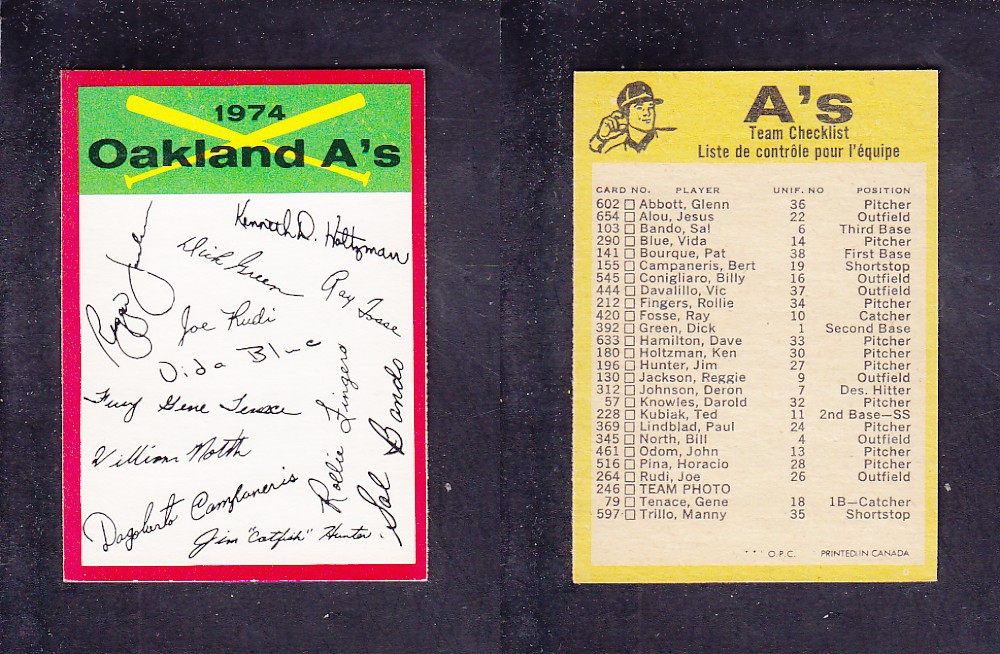 1974
Oakland A's
Kenneth D. Holtzman
Dick Green
Ray Fosse
Reggie Jackson
Joe Rudi
Vida Blue
Fury Gene Tenace
William North
Rollie Fingers
Sal Bando
Dagoberto Campaneris
Jim "Catfish" Hunter.
A's
Team Checklist
Liste de contrôle pour l'équipe
CARD NO. PLAYER UNIF. NO POSITION
602 Abbott, Glenn 36 Pitcher
654 Alou, Jesus 22 Outfield
103 Bando, Sal 6 Third Base
290 Blue, Vida 14 Pitcher
141 Bourque, Pat 38 First Base
155 Campaneris, Bert 19 Shortstop
545 Conigliaro, Billy 16 Outfield
444 Davalillo, Vic 37 Outfield
212 Fingers, Rollie 34 Pitcher
420 Fosse, Ray 10 Catcher
392 Green, Dick 1 Second Base
633 Hamilton, Dave 33 Pitcher
180 Holtzman, Ken 30 Pitcher
196 Hunter, Jim 27 Pitcher
130 Jackson, Reggie 9 Outfield
312 Johnson, Deron 7 Des. Hitter
57 Knowles, Darold 32 Pitcher
228 Kubiak, Ted 11 2nd Base—SS
369 Lindblad, Paul 24 Pitcher
345 North, Bill 4 Outfield
461 Odom, John 13 Pitcher
516 Pina, Horacio 28 Pitcher
264 Rudi, Joe 26 Outfield
246 TEAM PHOTO
79 Tenace, Gene 18 1B—Catcher
597 Trillo, Manny 35 Shortstop
*** O.P.C. PRINTED IN CANADA